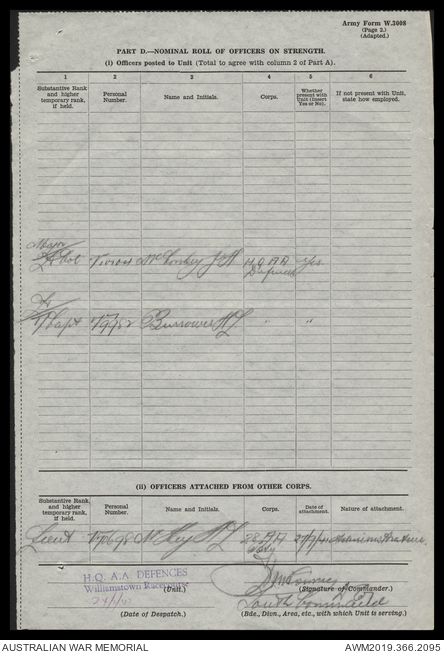 Army Form W.3008
(Page 2.)
(Adapted.)
PART D.—NOMINAL ROLL OF OFFICERS ON STRENGTH.
(i) Officers posted to Unit (Total to agree with column 2 of Part A).
1 2 3 4 5 6
Substantive Rank and higher temporary rank, if held.
Personal Number.
Name and Initials.
Corps.
Whether present with Unit (insert Yes or No).
If not present with Unit, state how employed.
Major
H.Q. A A Yes
Defences
Burrowes "
(ii) OFFICERS ATTACHED FROM OTHER CORPS.
Substantive Rank and higher temporary rank, if held.
Personal Number.
Name and Initials.
Corps.
Date of attachment.
Nature of attachment.
Lieut
H.Q. A.A DEFENCES
Williamstown Racecourse
(Unit.)
(Signature of Commander.)
South Command
(Date of Despatch.)
(Bde., Disn., Area, etc., with which Unit is serving.)
AUSTRALIAN WAR MEMORIAL
AWM2019.366.2095